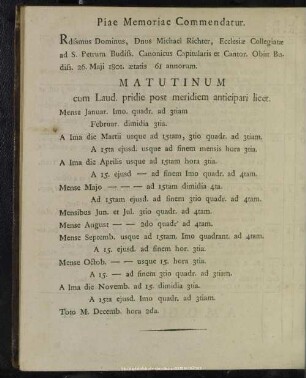 Piae Memoriae Commendatur.
Rdissmus Dominus, Dnus Michael Richter, Ecclesiæ Collegiatæ
ad S. Petrum Budiss. Canonicus Capitularis et Cantor. Obiit Bu-
diss. 26. Maji 1801. ætatis 61 annorum.
MATUTINUM
cum Laud. pridie post meridiem anticipari licet.
Mense Januar. Imo. quadr. ad 3tiam
Februar. dimidia 3tia.
A Ima die Martii usque ad 15tam, 3tio quadr. ad 3tiam.
A 15ta ejusd. usque ad finem mensis hora 3tia.
A Ima die Aprilis usque ad 15tam hora 3tia.
A 15. ejusd — ad finem Imo quadr. ad 4tam.
Mense Majo — — — ad 15tam dimidia 4ta.
Ad 15tam ejusd. ad finem 3tio quadr. ad 4tam.
Mensibus Jun. et Jul. 3tio quadr. ad 4tam.
Mense August — — 2do quadr. ad 4tam.
Mense Septemb. usque ad 15tam. Imo quadrant. ad 4tam.
A 15. ejusd. ad finem hor. 3tia.
Mense Octob. — — usque 15. hora 3tia.
A 15. — ad finem 3tio quadr. ad 3tiam.
A Ima die Novemb. ad 15. dimidia 3tia.
A 15ta ejusd. Imo quadr. ad 3tiam.
Toto M. Decemb. hora 2da.